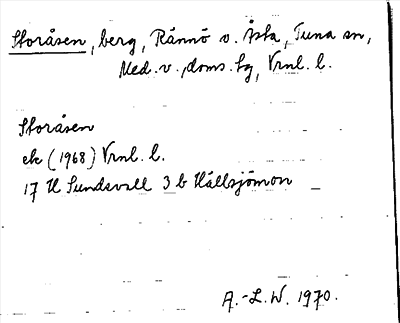 Storåsen, berg, Rännö v. Åsta, Tuna sn,
Med. v., doms. tg, Vrnl. l.
Storåsen
ek (1968) Vrnl. l.
17 H Sundsvall 3 b Hällsjömon
A.-L. W. 1970.